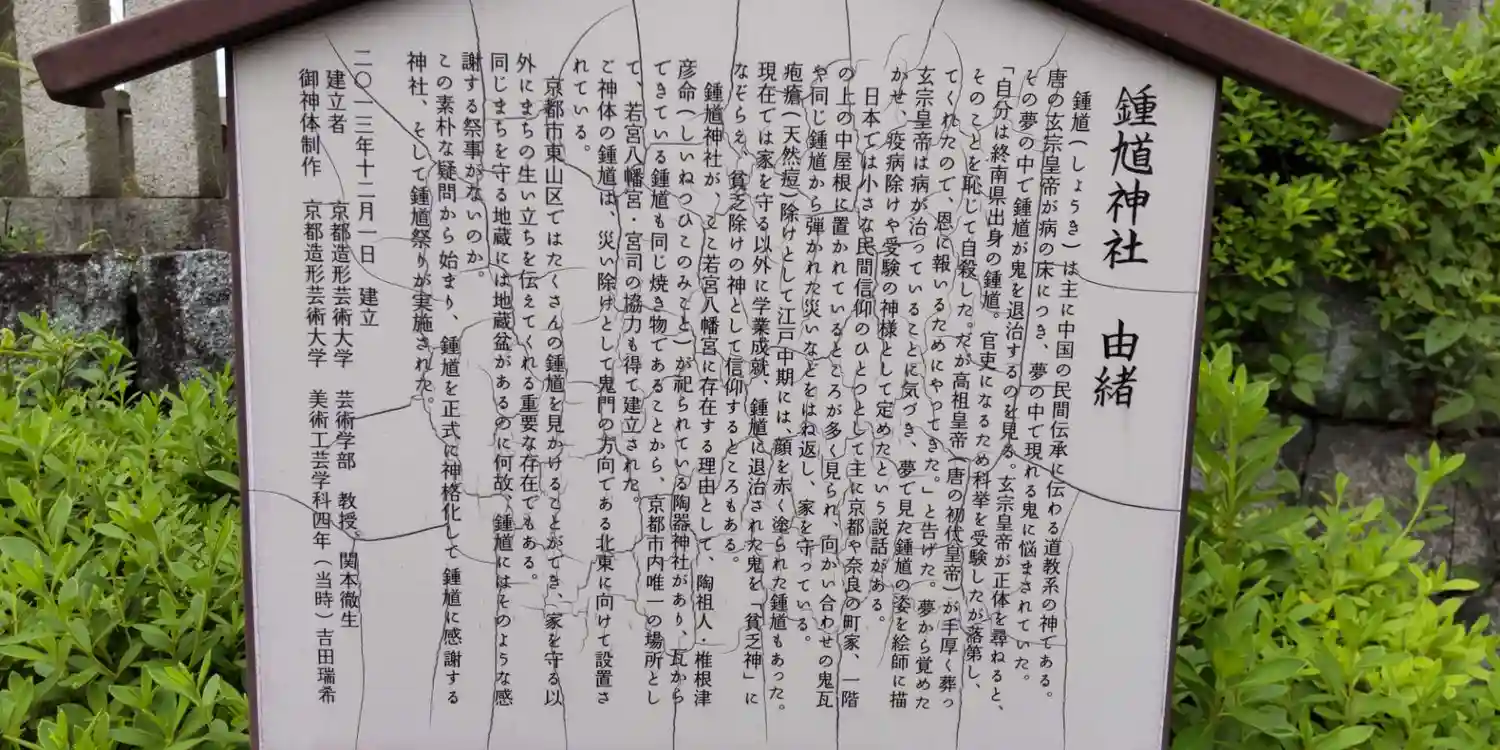 鍾馗神社　由緒
鍾馗（しょうき）は主に中国の民間伝承に伝わる道教系の神である。
唐の玄宗皇帝が病の床につき、夢の中で現れる鬼に悩まされていた。
その夢の中で鍾馗が鬼を退治するのを見る。玄宗皇帝が正体を尋ねると、
「自分は終南県出身の鍾馗。官吏になるため科挙を受験したが落第し、
そのことを恥じて自殺した。だが高祖皇帝（唐の初代皇帝）が手厚く葬っ
てくれたので、恩に報いるためにやってきた。」と告げた。夢から覚めた
玄宗皇帝は病が治っていることに気づき、夢で見た鍾馗の姿を絵師に描
かせ、疫病除けや受験の神様として定めたという説話がある。
日本では小さな民間信仰のひとつとして主に京都や奈良の町家、一階
の上の中屋根に置かれているところが多く見られ、向かい合わせの鬼瓦
や同じ鍾馗から弾かれた災いなどをはね返し、家を守っている。
疱瘡（天然痘）除けとして江戸中期には、顔を赤く塗られた鍾馗もあった。
現在では家を守る以外に学業成就、鍾馗に退治された鬼を「貧乏神」に
なぞらえ、貧乏除けの神として信仰するところもある。
鍾馗神社が、ここ若宮八幡宮に存在する理由として、陶祖人・椎根津
彦命（しいねつひこのみこと）が祀られている陶器神社があり、瓦から
できている鍾馗も同じ焼き物であることから、京都市内唯一の場所とし
て、若宮八幡宮・宮司の協力も得て建立された。
ご神体の鍾馗は、災い除けとして鬼門の方向である北東に向けて設置さ
れている。
京都市東山区ではたくさんの鍾馗を見かけることができ、家を守る以
外にまちの生い立ちを伝えてくれる重要な存在でもある。
同じまちを守る地蔵には地蔵盆があるのに何故、鍾馗にはそのような感
謝する祭事がないのか。
この素朴な疑問から始まり、鍾馗を正式に神格化して鍾馗に感謝する
神社、そして鍾馗祭りが実施された。
二〇一三年十二月一日　建立
建立者　京都造形芸術大学　芸術学部　教授。関本徹生
御神体制作　京都造形芸術大学　美術工芸学科四年（当時）吉田瑞希